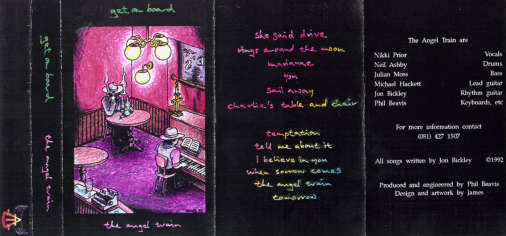 get on board
get on board
the angel train
the angel train
she said drive
rings around the moon
marianne
you
sail away
charlie's table and chair
temptation
tell me about it
i believe in you
when sorrow comes
the angel train
tomorrow
The Angel Train are
Nikki Prior Vocals
Neil Ashby Drums
Julian Moss Bass
Michael Hackett Lead guitar
Jon Bickley Rhythm guitar
Phil Beavis Keyboards, etc
For more information contact
(081) 427 1507
All songs written by Jon Bickley ©1992
Produced and engineered by Phil Beavis
Design and artwork by James